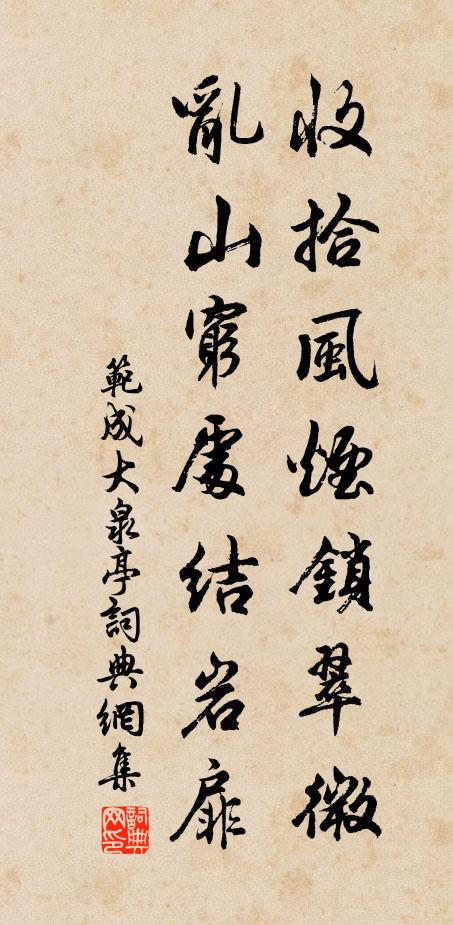 收拾風煙鎖翠微
亂山窮處結岩扉
範成大泉亭詞典網集
詞典网印